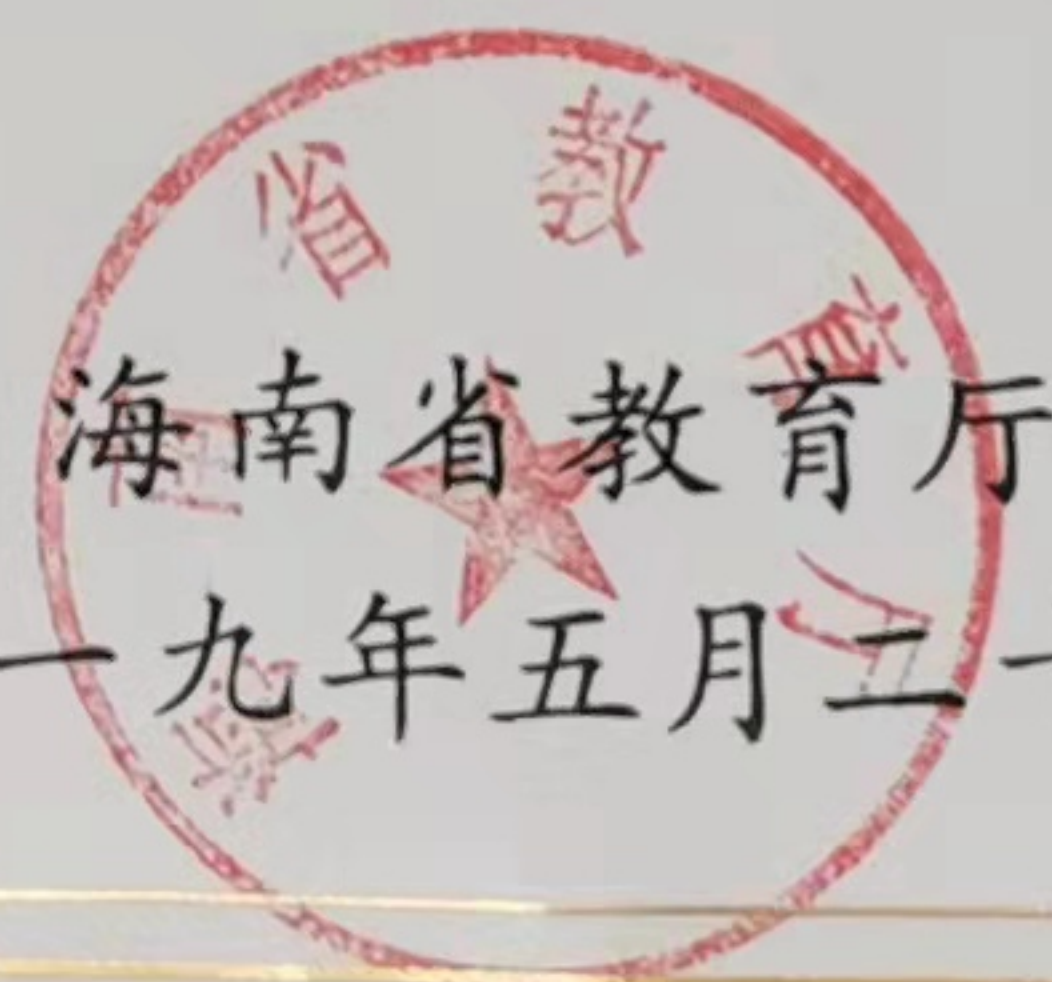 省教育厅
海南省教育厅
一九年五月二